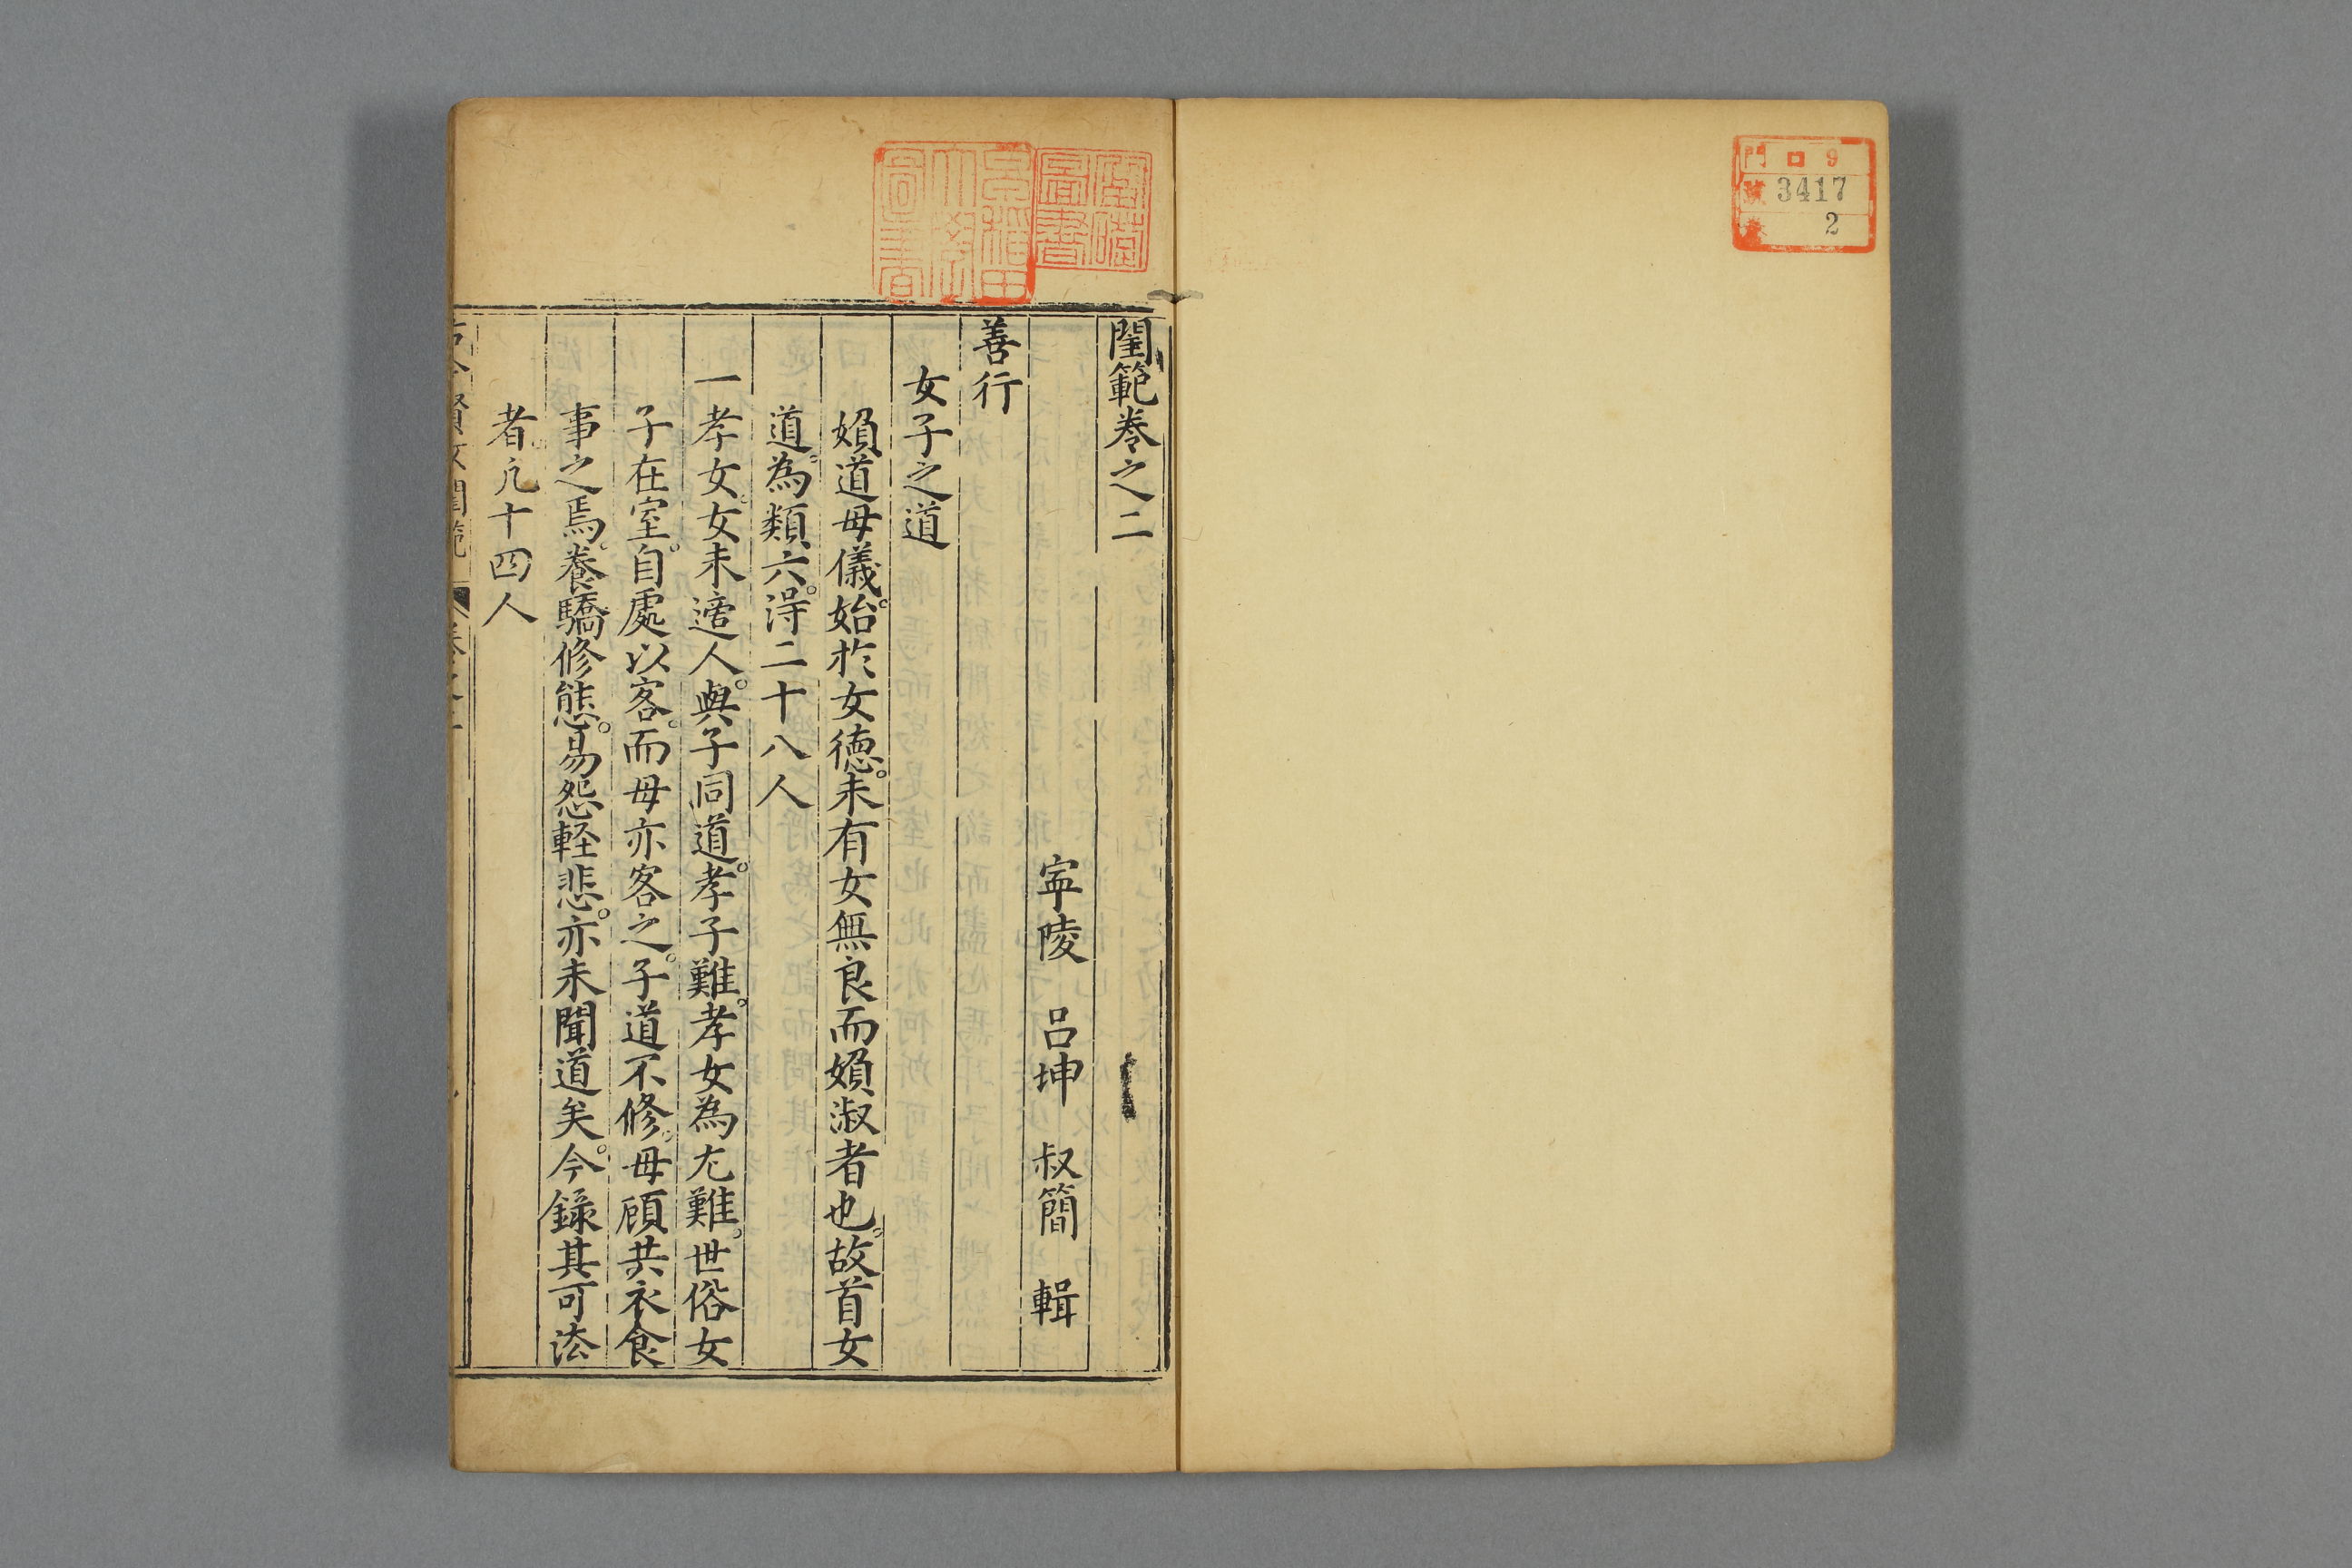 門 ロ 9
號 3417
卷 2
早稲田大學圖書
閨範卷之二
寕陵 呂坤 叔簡 輯
善行
女子之道
婦道母儀。始於女德。未有女無良而婦淑者也。故首女
道。為類六。得二十八人
一孝女。女未適人。與子同道。孝子難。孝女為尤難。世俗女
子在室。自處以客。而母亦客之。子道不修。母顧共衣食
事之焉。養驕修態。易怨輕悲。亦未聞道矣。今錄其可法
者。凡十四人
古今賢女閨範 卷之二